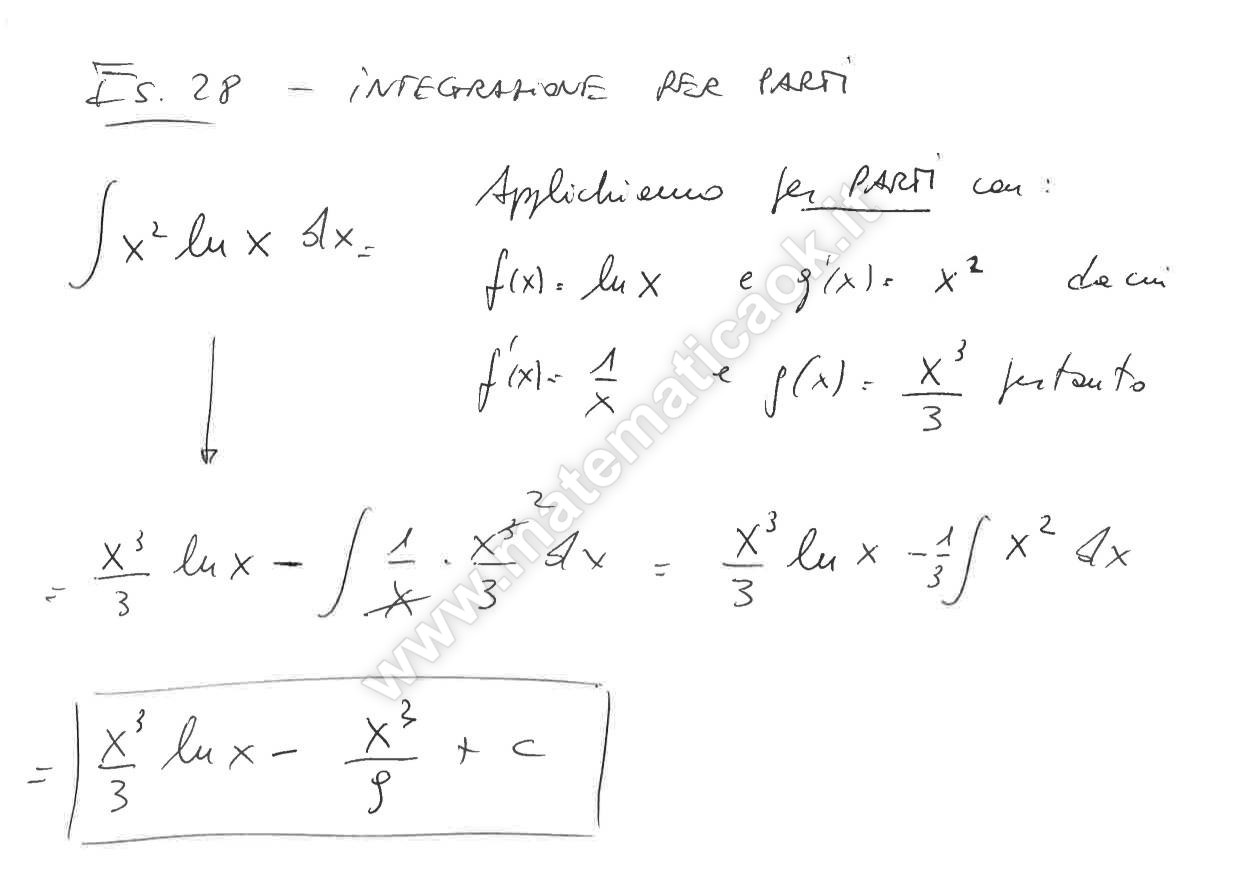 Es. 28 - INTEGRAZIONE PER PARTI
∫ x² ln x dx =
Applichiamo per PARTI con:
f(x) = ln x e g'(x) = x² da cui
f'(x) = 1/x e g(x) = x³/3 pertanto
= x³/3 ln x - ∫ 1/x · x³/3 ² dx = x³/3 ln x - 1/3 ∫ x² dx
= x³/3 ln x - x³/9 + c
www.matematicaok.it